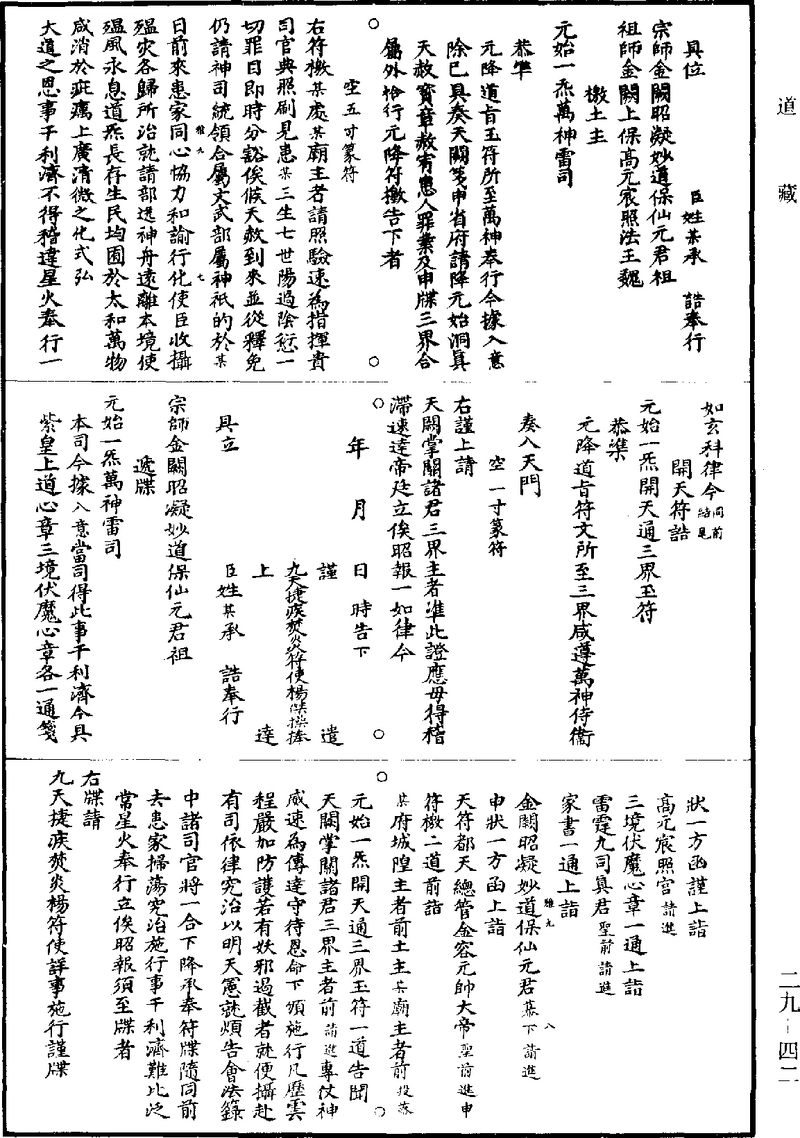 道藏
具位　臣姓某承　誥奉行
宗師金闕昭凝妙道保仙元君祖
祖師金闕上保高元宸照法王魏
檄土主
元始一炁萬神雷司
恭準
元降道旨玉符所至萬神奉行今據入意
除已具奏天闕箋申省府請降元始洞真
天赦寶章赦宥患人罪業及申牒三界合
屬外恰行元降符檄告下者
空五寸篆符
右符檄某處某廟主者請照驗速為指揮貴
司官典照刷見患某三生七世陽過陰愆一
切罪目即時分豁俟候天赦到來並從釋免
仍請神司統領合屬文武部屬神祇的於某
雅九　七
日前來患家同心協力和諭行化使臣收攝
瘟灾各歸所治就請部送神舟遠離本境使
瘟風永息道炁長存生民均囿於太和萬物
咸消於疵癘上廣清微之化式弘
大道之恩事干利濟不得稽違星火奉行一
如玄科律令同前結尾
開天符誥
元始一炁開天通三界玉符
恭準
元降道旨符文所至三界咸遵萬神侍衛
奏入天門
空一寸篆符
右謹上請
天闕掌關諸君三界主者準此證應毋得稽
滯速達帝廷立俟昭報一如律令
年　月　日　時告下
謹　遣
九天捷疾焚炎符使楊傑捧
上　達
具立　臣姓某承　誥奉行
宗師金闕昭凝妙道保仙元君祖
遞牒
元始一炁萬神雷司
本司今據入意當司得此事干利濟今具
紫皇上道心章三境伏魔心章各一通箋
狀一方函謹上詣
高元宸照宮請進
三境伏魔心章一通上詣
雷霆九司真君聖前請進
家書一通上詣
雅九　八
金闕昭凝妙道保仙元君幕下請進
申狀一方函上詣
天符都天總管金容元帥大帝聖前進申
符檄二道前詣
某府城隍主者前土主某廟主者前投落
元始一炁開天通三界玉符一道告聞
天闕掌關諸君三界主者前請進專仗神
威速為傳達守待恩命下頒施行凡歷雲
程嚴加防護若有妖邪過截者就便攝赴
有司依律究治以明天憲就煩告會法籙
中諸司官將一合下降承奉符牒隨同前
去患家掃蕩究治施行事干利濟難比泛
常星火奉行立俟昭報須至牒者
右牒請
九天捷疾焚炎楊符使詳事施行謹牒
二九-四二